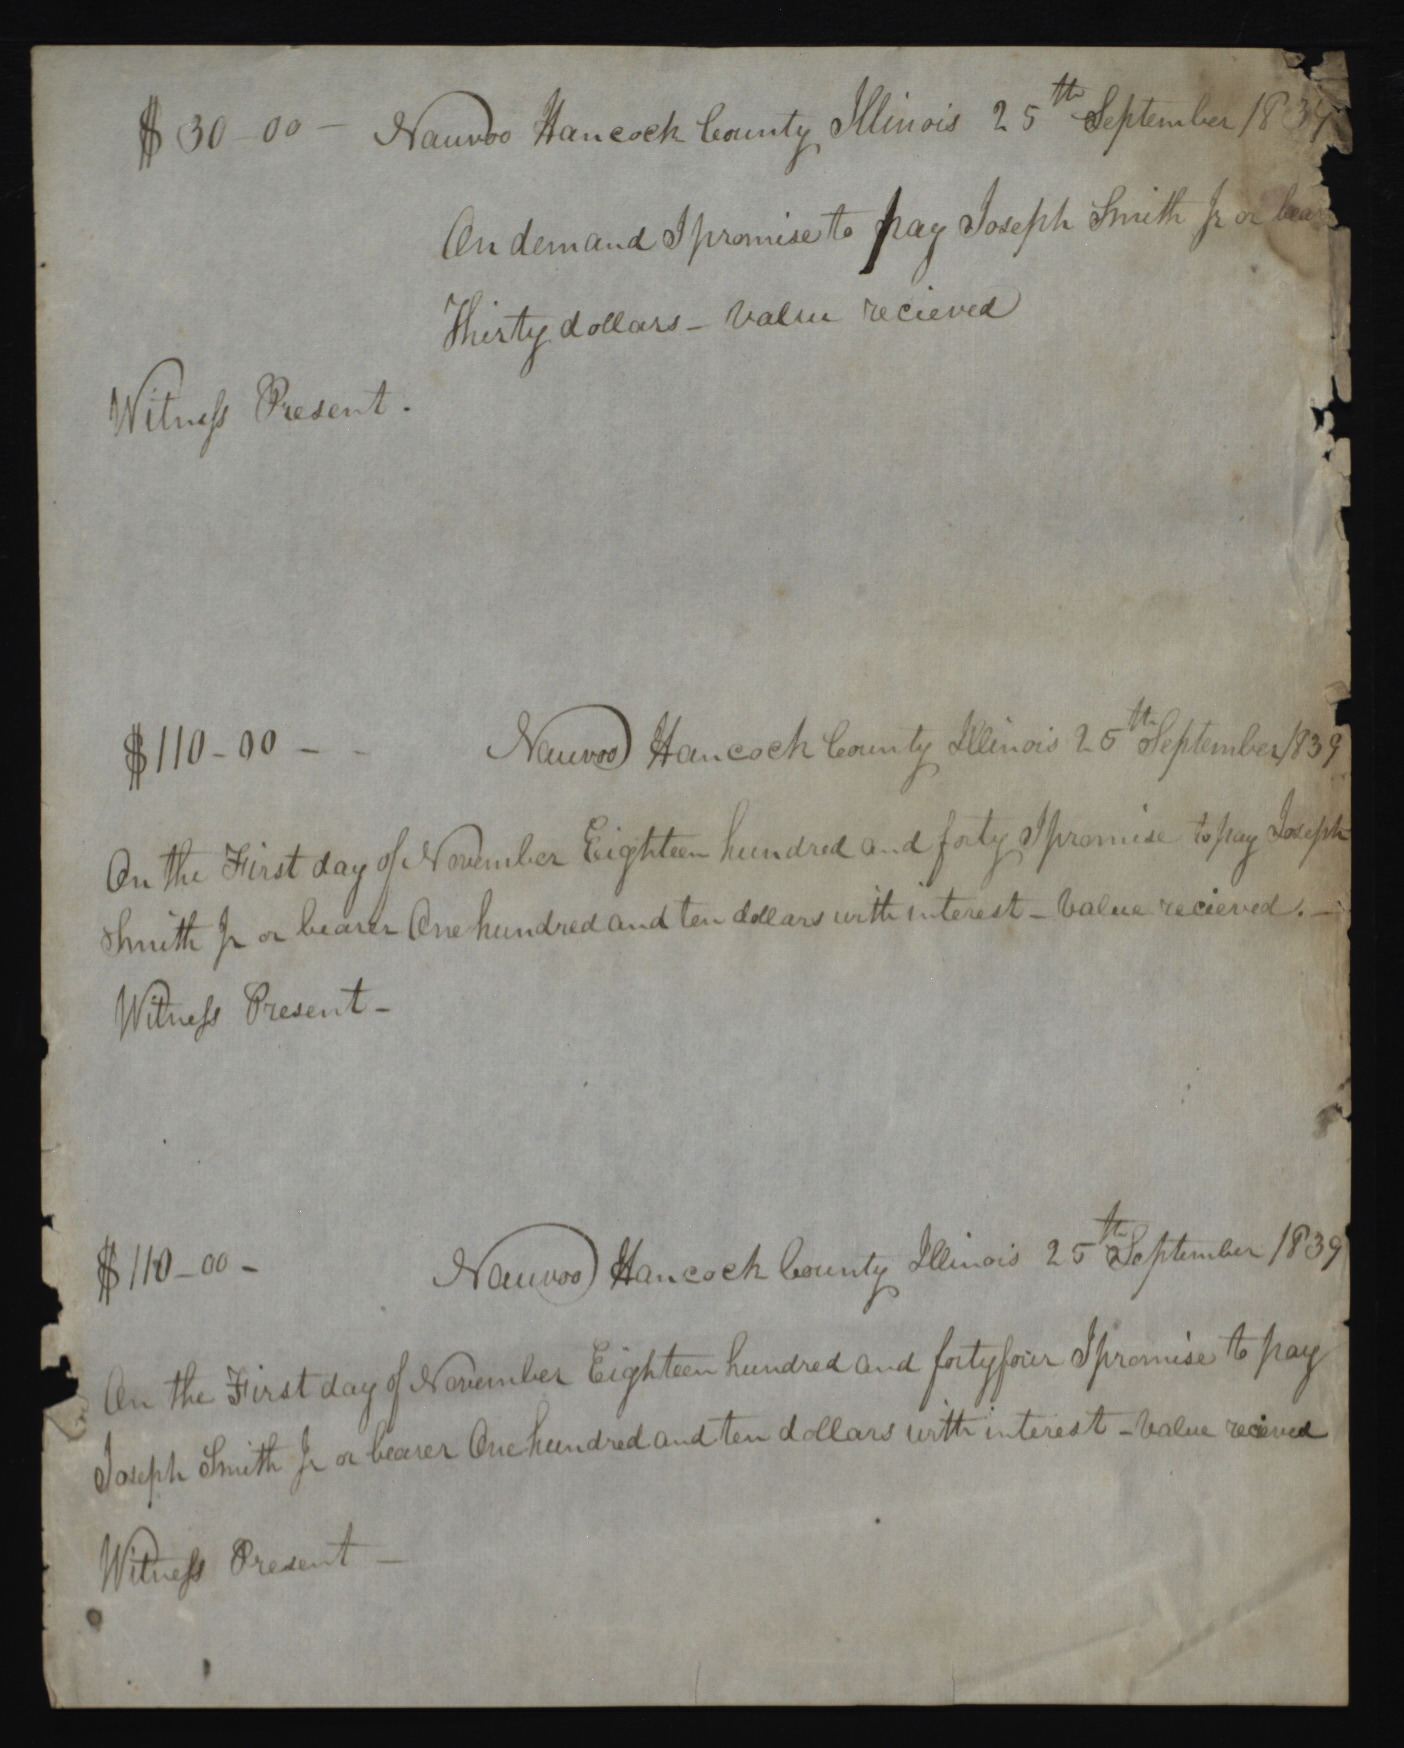 $30-00- Nauvoo Hancock County Illinois 25th September 1839
On demand I promise to pay Joseph Smith Jr or bear
Thirty dollars - value recieved
Witness Present.
$110-00 - - Nauvoo Hancock County Illinois 25th September 1839
On the First day of November Eighteen hundred and forty I promise to pay Joseph
Smith Jr or bearer One hundred and ten dollars with interest - value recieved. -
Witness Present -
$110-00 - Nauvoo Hancock County Illinois 25th September 1839
On the First day of November Eighteen hundred and forty four I promise to pay
Joseph Smith Jr or bearer One hundred and ten dollars with interest - value recieved
Witness Present -